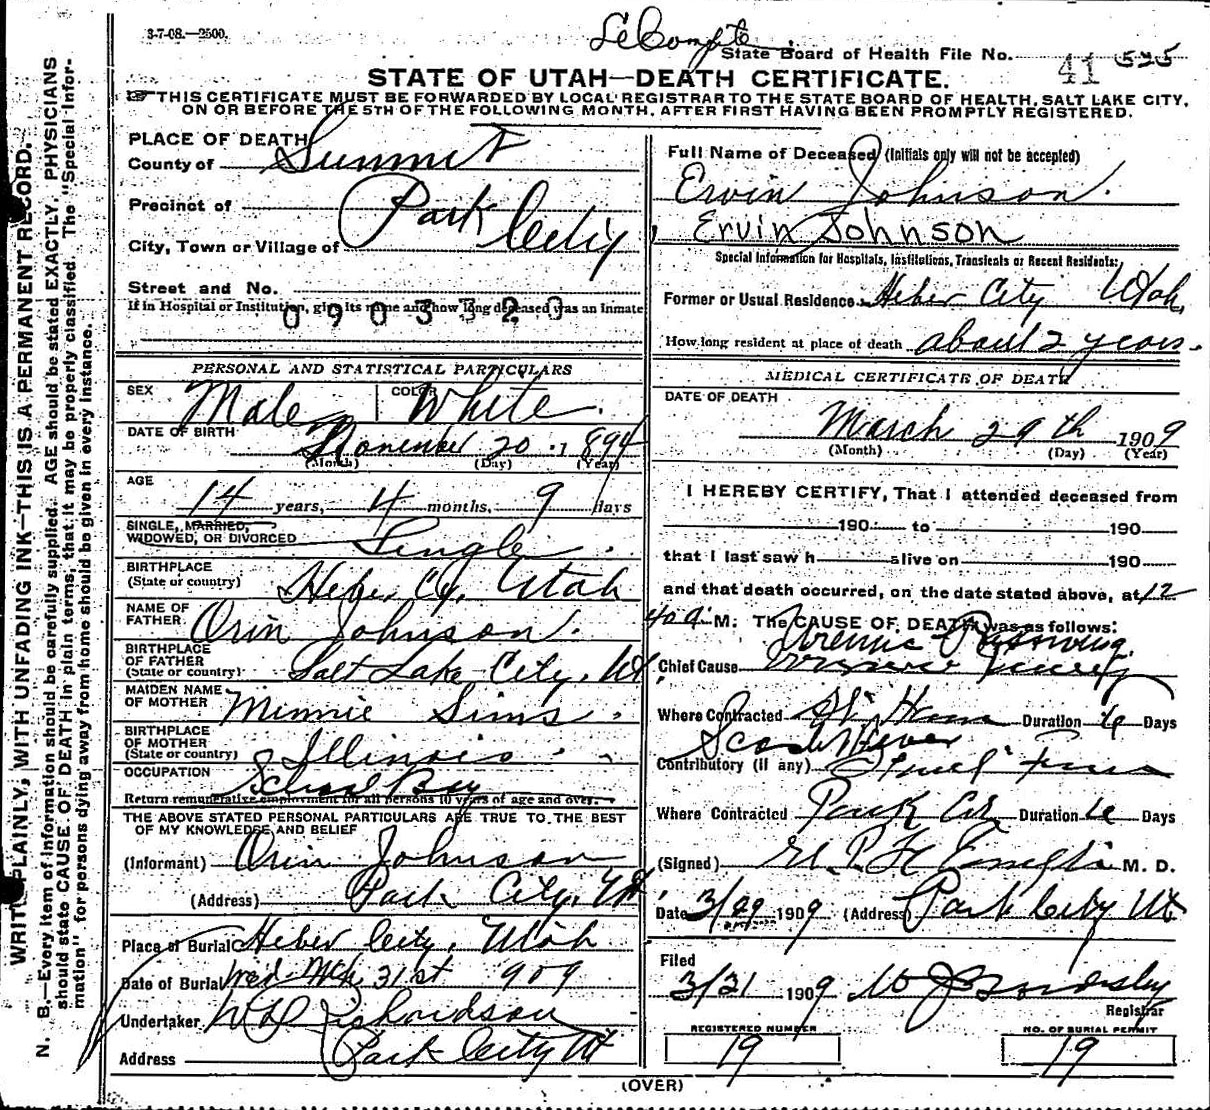 3-7-08.—2500.
State Board of Health File No. 41 535
STATE OF UTAH—DEATH CERTIFICATE.
THIS CERTIFICATE MUST BE FORWARDED BY LOCAL REGISTRAR TO THE STATE BOARD OF HEALTH, SALT LAKE CITY,
ON OR BEFORE THE 5TH OF THE FOLLOWING MONTH, AFTER FIRST HAVING BEEN PROMPTLY REGISTERED.
WRITE PLAINLY, WITH UNFADING INK—THIS IS A PERMANENT RECORD.
N. B.—Every item of information should be carefully supplied. AGE should be stated EXACTLY. PHYSICIANS
should state CAUSE OF DEATH in plain terms, that it may be properly classified. The "Special Infor-
mation" for persons dying away from home should be given in every instance.
PLACE OF DEATH
County of Summit
Precinct of Park City
City, Town or Village of
Street and No.
If in Hospital or Institution, give its name and how long deceased was an Inmate
0903320
PERSONAL AND STATISTICAL PARTICULARS
SEX Male COLOR White.
DATE OF BIRTH November 20 1894
(Month) (Day) (Year)
AGE
14 years, 4 months, 9 days
SINGLE, MARRIED,
WIDOWED, OR DIVORCED Single.
BIRTHPLACE
(State or country) Heber Cy, Utah
NAME OF
FATHER Orin Johnson.
BIRTHPLACE
OF FATHER
(State or country) Salt Lake City, Ut
MAIDEN NAME
OF MOTHER Minnie Sims.
BIRTHPLACE
OF MOTHER
(State or country) Illinois
OCCUPATION School Boy
Return remunerative employment for all persons 10 years of age and over.
THE ABOVE STATED PERSONAL PARTICULARS ARE TRUE TO THE BEST
OF MY KNOWLEDGE AND BELIEF
(Informant) Orin Johnson
(Address) Park City, Ut
Place of Burial Heber City, Utah
Date of Burial Wed. Mch, 31st 909
Undertaker Richardson
Address Park City Ut
Full Name of Deceased (Initials only will not be accepted)
Ervin Johnson.
Ervin Johnson
Special Information for Hospitals, Institutions, Transients or Recent Residents:
Former or Usual Residence Heber City Utah,
How long resident at place of death about 2 years.
MEDICAL CERTIFICATE OF DEATH
DATE OF DEATH
March 29th 1909
(Month) (Day) (Year)
I HEREBY CERTIFY, That I attended deceased from
190 to 190
that I last saw h alive on 190
and that death occurred, on the date stated above, at 12
40 a M. The CAUSE OF DEATH was as follows:
Uremic Poisoning.
Chief Cause
Where Contracted Duration 6 Days
Scarlet Fever
Contributory (if any)
Where Contracted Park City Duration 6 Days
(Signed) M. D.
Date 3/29 1909 (Address) Park City Ut
Filed
3/31 1909
Registrar
REGISTERED NUMBER
19
NO. OF BURIAL PERMIT
19
(OVER)